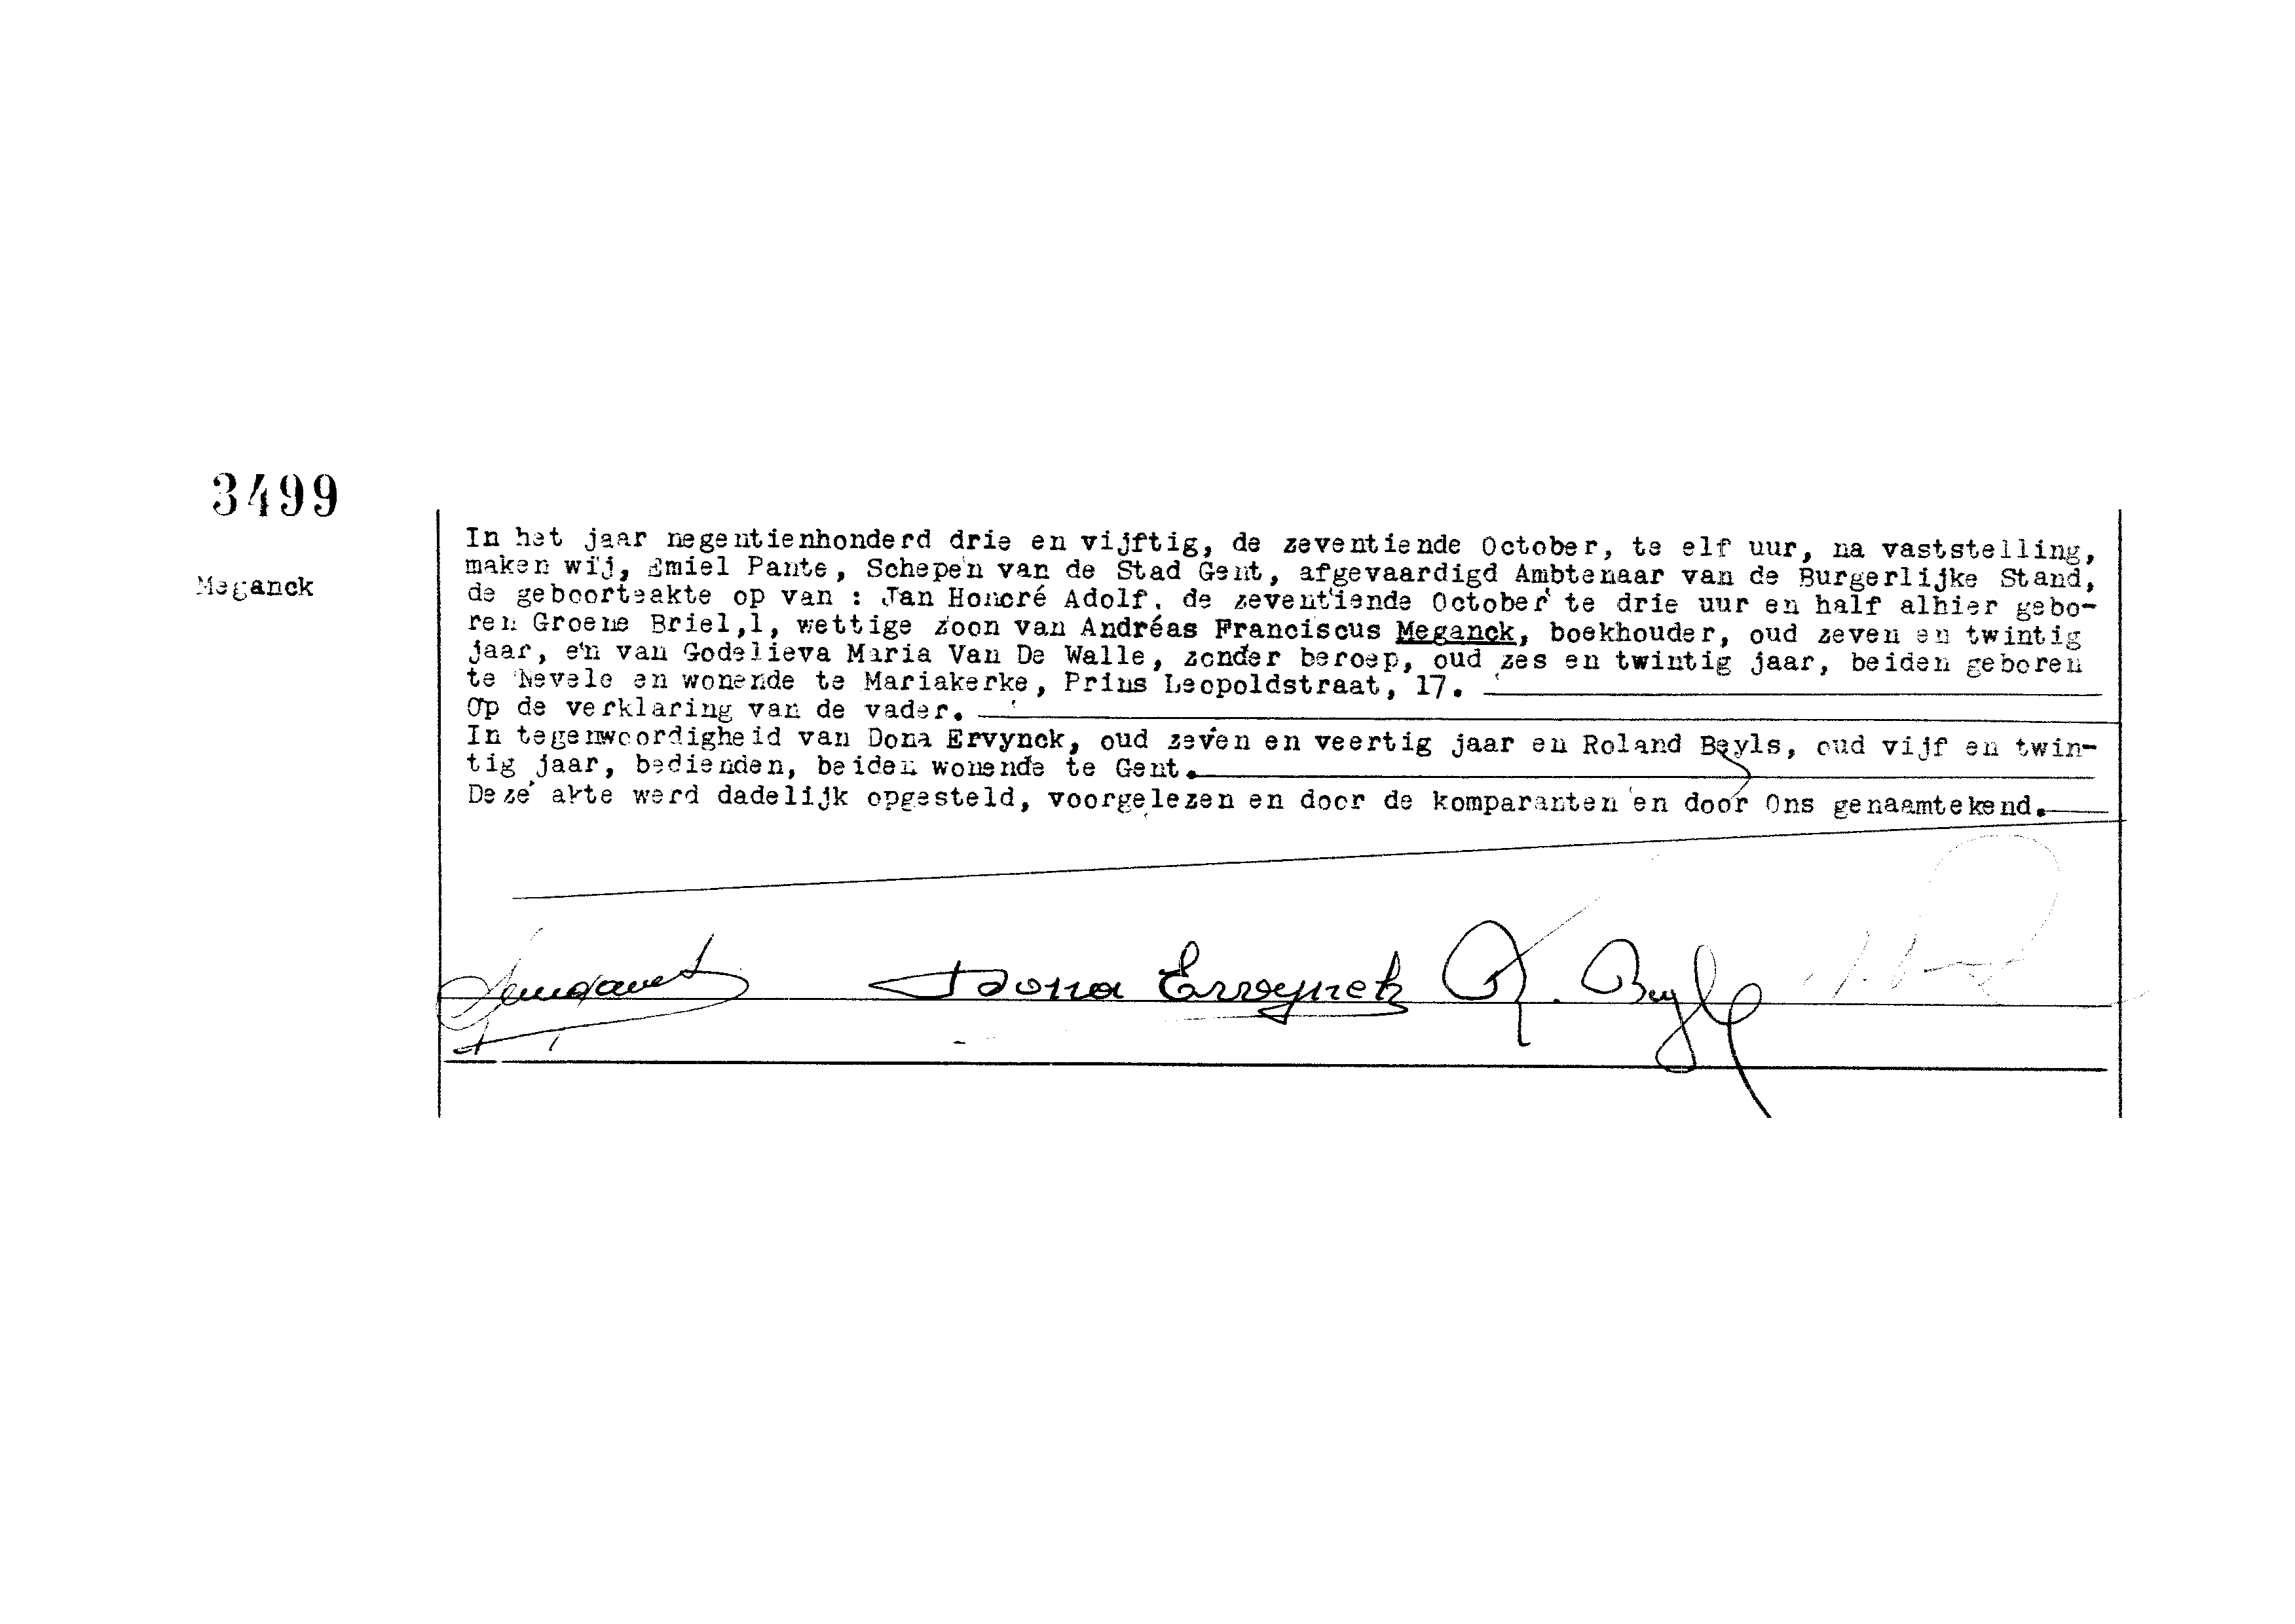 3499
Meganck
In het jaar negentienhonderd drie en vijftig, de zeventiende October, te elf uur, na vaststelling,
maken wij, Emiel Pante, Schepen van de Stad Gent, afgevaardigd Ambtenaar van de Burgerlijke Stand,
de geboorteakte op van : Jan Honoré Adolf, de zeventiende October te drie uur en half alhier gebo-
ren Groene Briel,1, wettige zoon van Andréas Franciscus Meganck, boekhouder, oud zeven en twintig
jaar, en van Godelieva Maria Van De Walle, zonder beroep, oud zes en twintig jaar, beiden geboren
te Nevele en wonende te Mariakerke, Prins Leopoldstraat, 17.
Op de verklaring van de vader.
In tegenwoordigheid van Dona Ervynck, oud zeven en veertig jaar en Roland Beyls, oud vijf en twin-
tig jaar, bedienden, beiden wonende te Gent.
Deze akte werd dadelijk opgesteld, voorgelezen en door de komparanten en door Ons genaamtekend.
Dona Ervynck R. Beyls